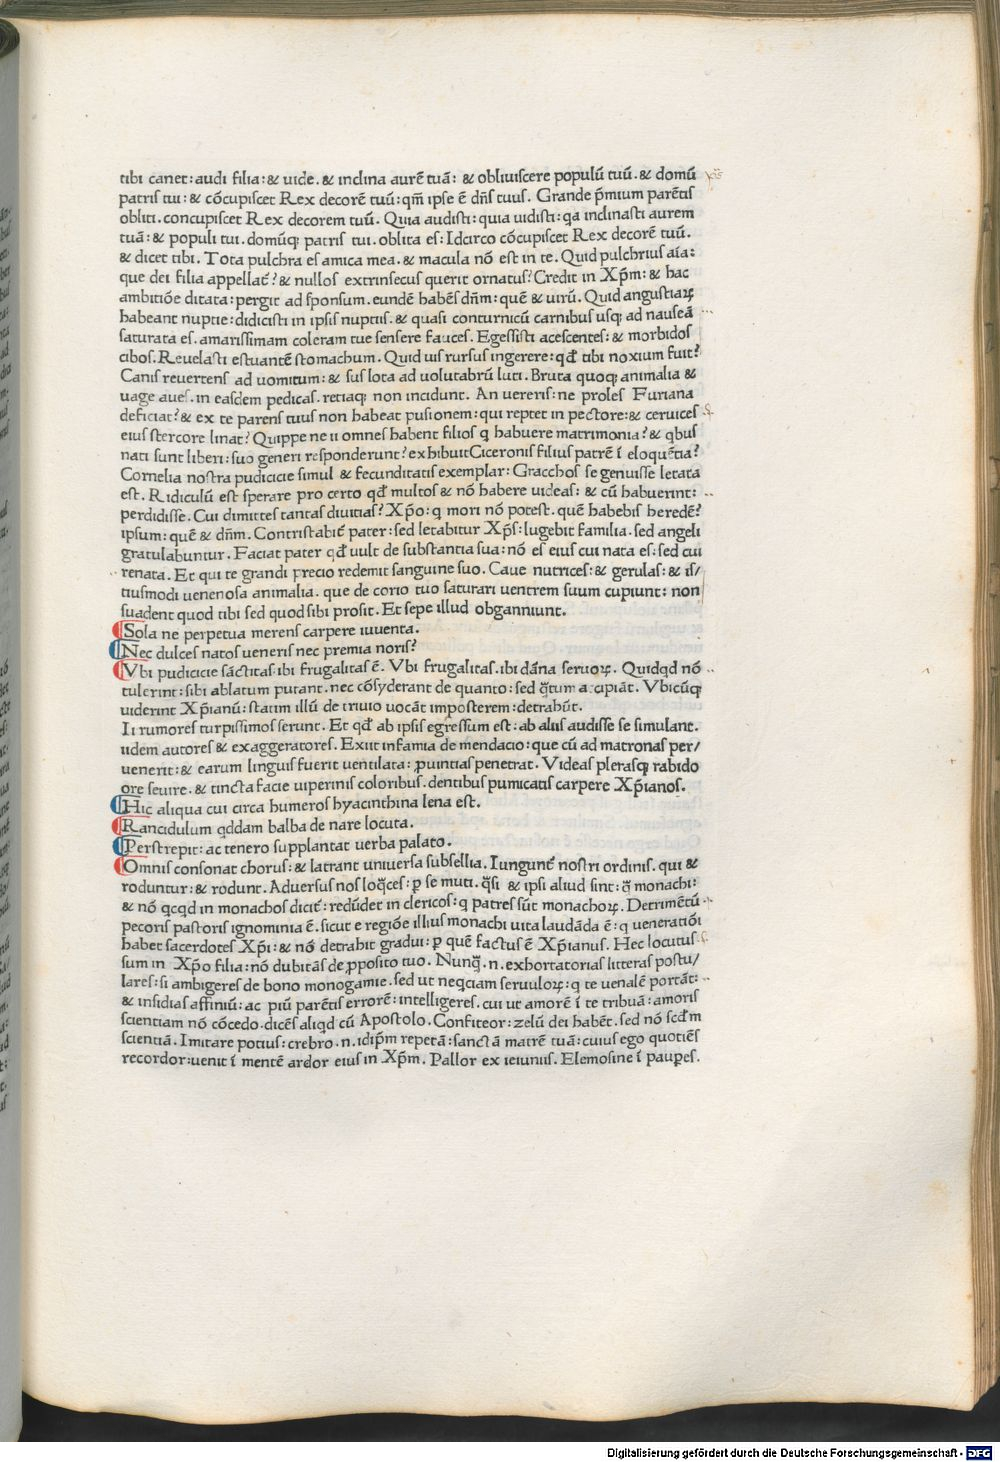 tibi canet: audi filia: & uide. & inclina aurē tuā: & obliuiscere populū tuū. & domū
patris tui: & cōcupiscet Rex decorē tuū: qm̄ ipse ē dn̄s tuus. Grande p̄mium parētis
obliti. concupiscet Rex decorem tuū. Quia audisti: quia uidisti: qa inclinasti aurem
tuā: & populi tui. domūq; patris tui. oblita es: Idcirco cōcupiscet Rex decorē tuū.
& dicet tibi. Tota pulchra es amica mea. & macula nō est in te. Quid pulchrius aīa:
que dei filia appellat᷑? & nullos extrinsecus querit ornatus? Credit in Xp̄m: & hac
ambitiōe ditata: pergit ad sponsum. eundē habēs dn̄m: quē & uirū. Quid angustiaꝝ
habeant nuptie: didicisti in ipsis nuptiis. & quasi conturnicū carnibus usq; ad nauseā
saturata es. amarissimam coleram tue sensere fauces. Egessisti acescentes: & morbidos
cibos. Reuelasti estuantē stomachum. Quid uis rursus ingerere: qd̄ tibi noxium fuit?
Canis reuertens ad uomitum: & sus lota ad uolutabrū luti. Bruta quoq; animalia &
uage aues. in easdem pedicas. retiaq; non incidunt. An uereris: ne proles Furiana
deficiat? & ex te parens tuus non habeat pusionem: qui reptet in pectore: & ceruices
eius stercore linat? Quippe ne ii omnes habent filios q habuere matrimonia? & qbus
nati sunt liberi: suo generi responderunt? exhibuit Ciceronis filius patrē ī eloquētia?
Cornelia nostra pudicicie simul & fecunditatis exemplar: Gracchos se genuisse letata
est. Ridiculū est sperare pro certo qd̄ multos & nō habere uideas: & cū habuerint:
perdidisse. Cui dimittes tantas diuitias? Xp̄o: q mori nō potest. quē habebis heredē?
ipsum: quē & dn̄m. Contristabit᷑ pater: sed letabitur Xp̄s: lugebit familia. sed angeli
gratulabuntur. Faciat pater qd̄ uult de substantia sua: nō es eius cui nata es: sed cui
renata. Et qui te grandi precio redemit sanguine suo. Caue nutrices: & gerulas: & is/
tiusmodi uenenosa animalia. que de corio tuo saturari uentrem suum cupiunt: non
suadent quod tibi sed quod sibi prosit. Et sepe illud obganniunt.
Sola ne perpetua merens carpere iuuenta.
Nec dulces natos ueneris nec premia noris?
Vbi pudicicie sāctitas. ibi frugalitas ē. Vbi frugalitas. ibi dāna seruoꝝ. Quidqd nō
tulerint: sibi ablatum putant. nec cōsyderant de quanto: sed q̄tum accipiāt. Vbicūq;
uiderint Xp̄ianū: statim illū de triuio uocāt imposterem: detrahūt.
Ii rumores turpissimos serunt. Et qd̄ ab ipsis egressum est: ab aliis audisse se simulant.
iidem autores & exaggeratores. Exiit infamia de mendacio: que cū ad matronas per/
uenerit: & earum linguis fuerit uentilata: ꝓuintias penetrat. Videas plerasq; rabido
ore seuire. & tincta facie uiperinis coloribus. dentibus pumicatis carpere Xp̄ianos.
Hic aliqua cui circa humeros hyacinthina lena est.
Rancidulum qddam balba de nare locuta.
Perstrepit: ac tenero supplantat uerba palato.
Omnis consonat chorus: & latrant uniuersa subsellia. Iungunt᷑ nostri ordinis. qui &
roduntur: & rodunt. Aduersus nos loq̄ces: ꝑ se muti. q̄si & ipsi aliud sint: q̄ monachi:
& nō qcqd in monachos dicit᷑: redūdet in clericos: q patres sūt monachoꝝ. Detrimētū
pecoris pastoris ignominia ē. sicut e regiōe illius monachi uita laudāda ē: q ueneratiōi
habet sacerdotes Xp̄i: & nō detrahit gradui: ꝑ quē factus ē Xp̄ianus. Hec locutus
sum in Xp̄o filia: nō dubitās de ꝓposito tuo. Nunq̄. n. exhortatorias litteras postu/
lares: si ambigeres de bono monogamie. sed ut neqciam seruuloꝝ: q te uenalē portāt:
& insidias affiniū: ac piū parētis errorē: intelligeres. cui ut amorē ī te tribuā: amoris
scientiam nō cōcedo. dicēs aliqd cū Apostolo. Confiteor: zelū dei habēt. sed nō scd̄m
scientiā. Imitare potius: crebro. n. idip̄m repetā: sanctā matrē tuā: cuius ego quotiēs
recordor: uenit ī mentē ardor eius in Xp̄m. Pallor ex ieiuniis. Elemosine ī paupes.
Digitalisierung gefördert durch die Deutsche Forschungsgemeinschaft - DFG